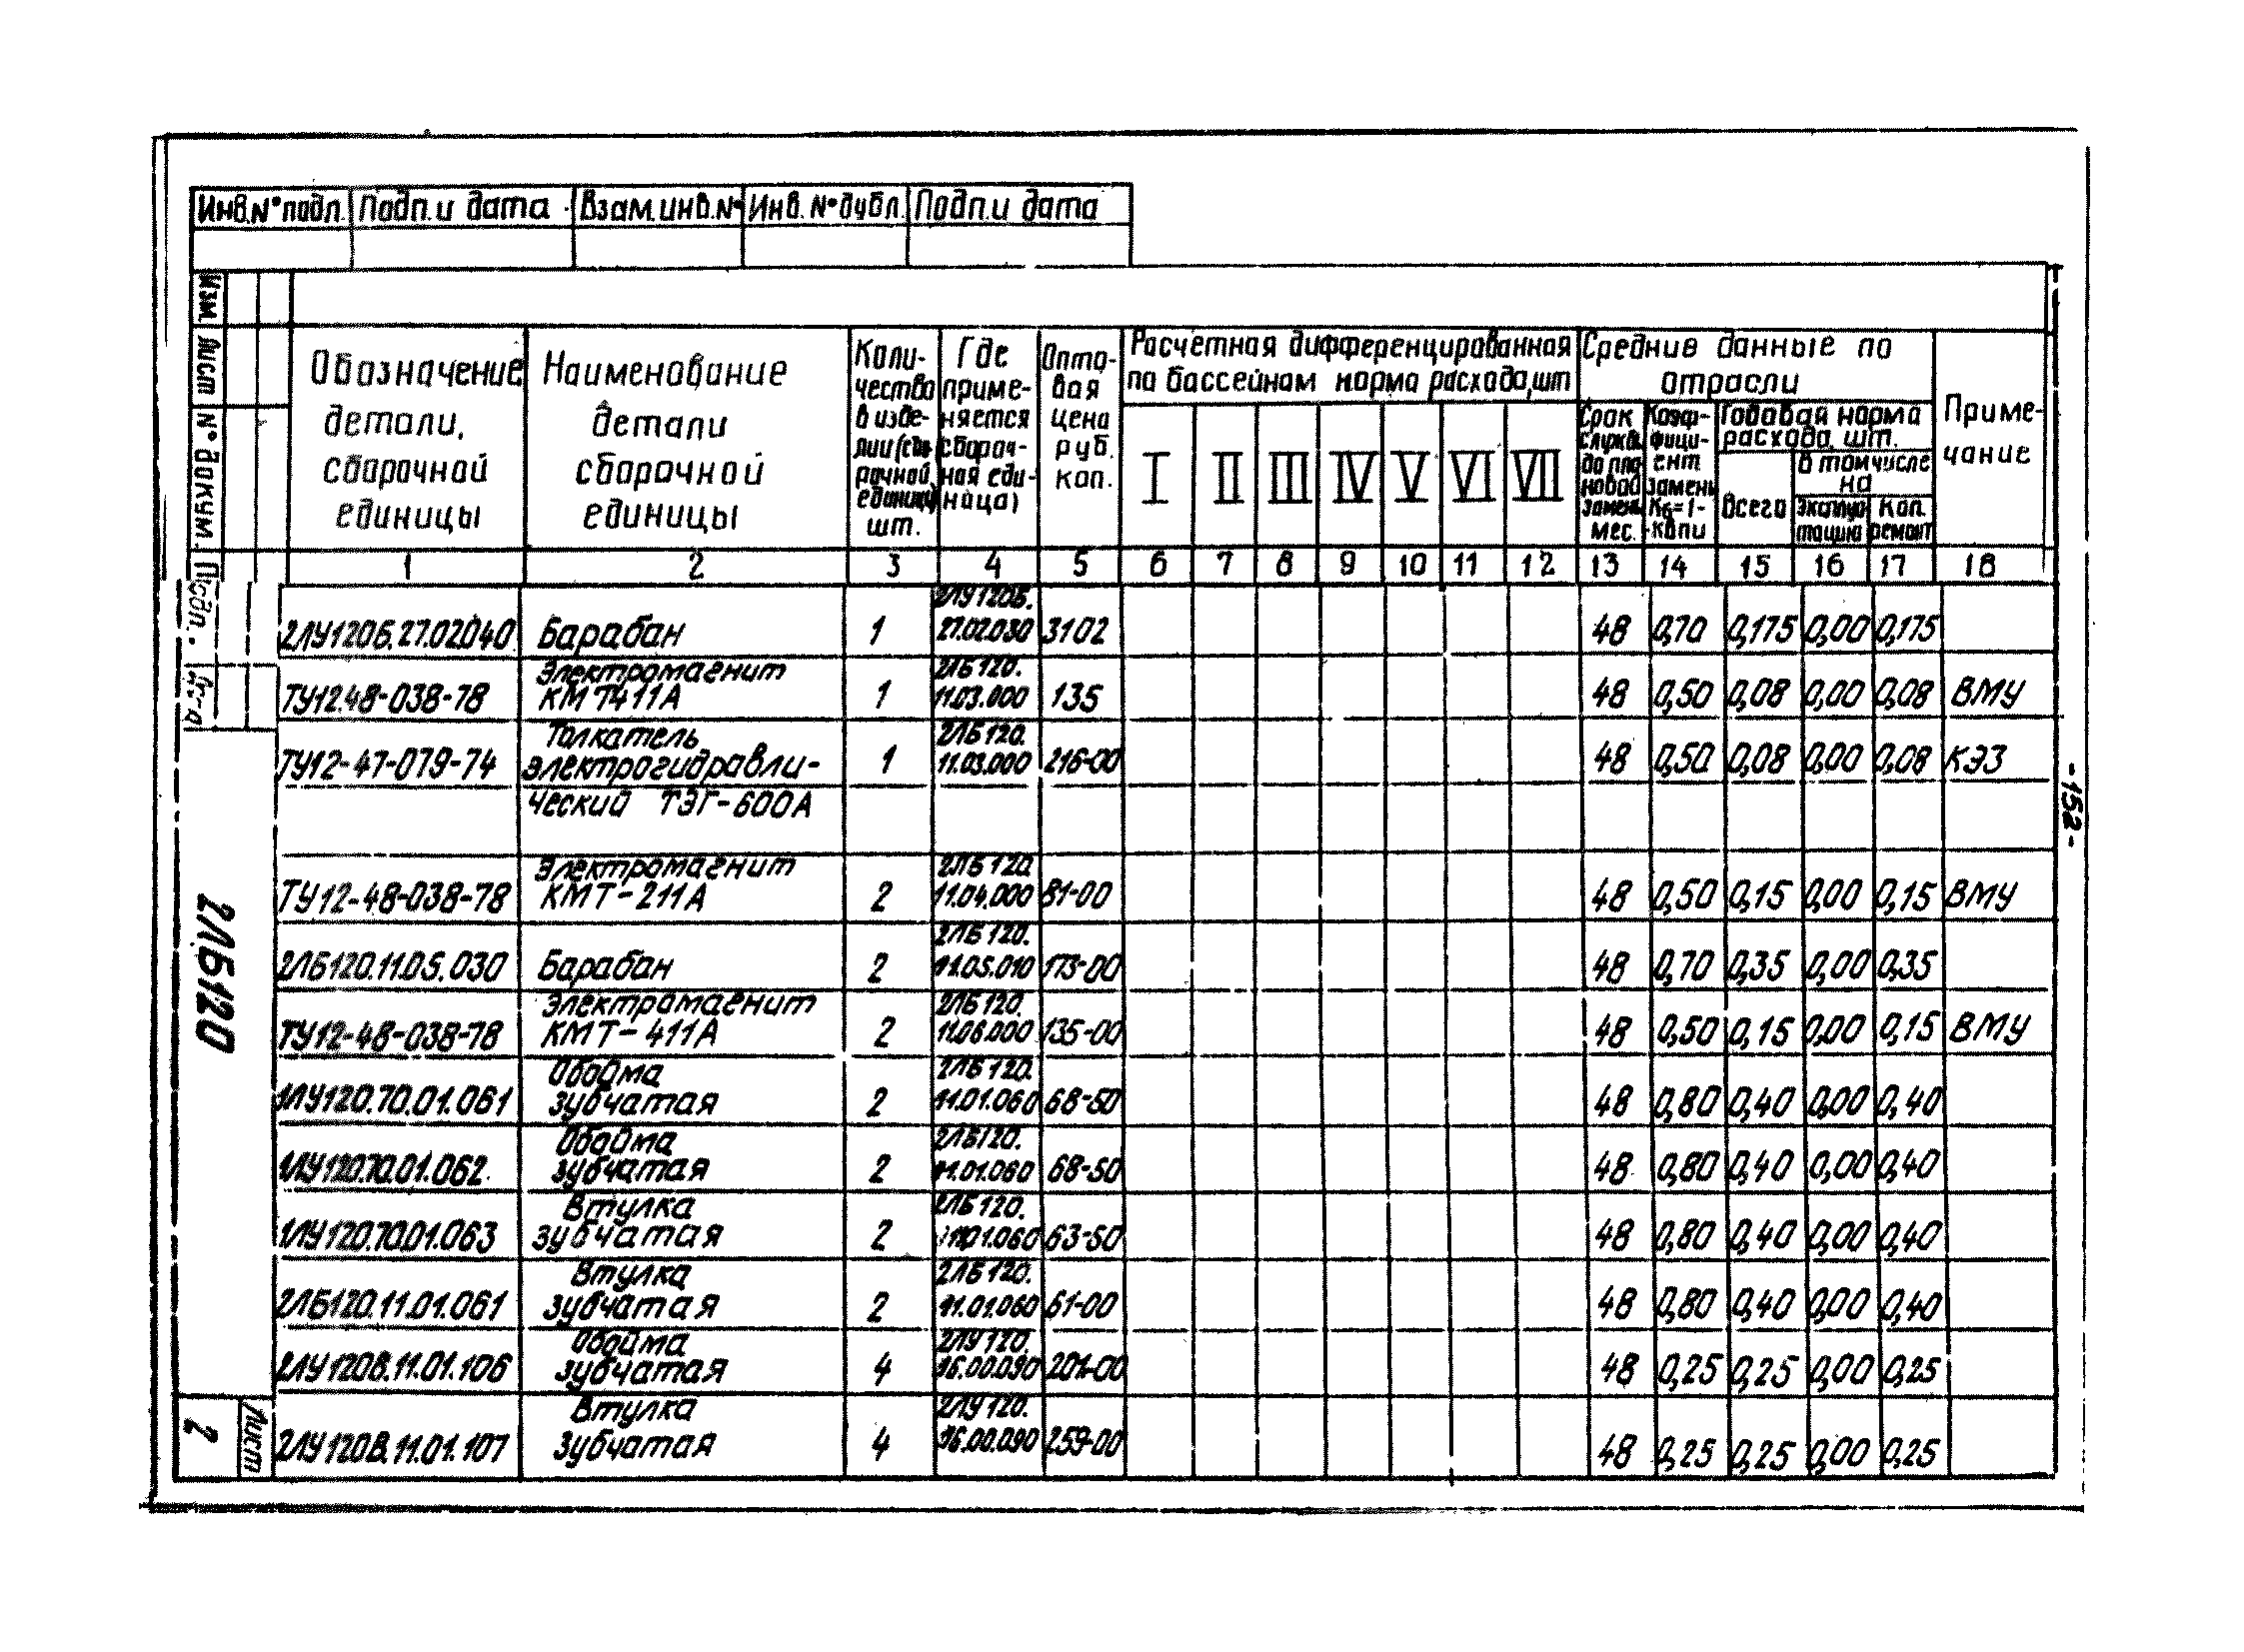 Инв.N° подл. Подп. и дата Взам. инв. N° Инв. N° дубл. Подп. и дата
Изм. Лист N° докум. Подп. Дата
Обозначение детали, сборочной единицы
Наименование детали сборочной единицы
Количество в изделии (сборочной единице) шт.
Где применяется сборочная единица)
Оптовая цена руб. коп.
Расчетная дифференцированная по бассейнам норма расхода, шт
I II III IV V VI VII
Средние данные по отрасли
Срок службы до плановой замены мес.
Коэффициент замены Kб=1-
Годовая норма расхода, шт.
Всего
в том числе на
Кап. ремонт
Примечание
1 2 3 4 5 6 7 8 9 10 11 12 13 14 15 16 17 18
2ЛУ120Б.27.02.040 Барабан 1 2ЛУ120Б. 27.02.030 3102 48 0,70 0,175 0,00 0,175
ТУ12.48-038-78 Электромагнит КМТ411А 1 2ЛБ120. 11.03.000 135 48 0,50 0,08 0,00 0,08 ВМУ
ТУ12-47-079-74 Толкатель электрогидравли- 1 2ЛБ120. 11.03.000 216-00 48 0,50 0,08 0,00 0,08 КЭЗ
ческий ТЭГ-600А
ТУ12-48-038-78 Электромагнит КМТ-211А 2 2ЛБ120. 11.04.000 81-00 48 0,50 0,15 0,00 0,15 ВМУ
2ЛБ120.11.05.030 Барабан 2 2ЛБ120. 11.05.010 173-00 48 0,70 0,35 0,00 0,35
ТУ12-48-038-78 Электромагнит КМТ-411А 2 2ЛБ120. 11.06.000 135-00 48 0,50 0,15 0,00 0,15 ВМУ
1ЛУ120.70.01.061 Обойма зубчатая 2 2ЛБ120. 11.01.060 68-50 48 0,80 0,40 0,00 0,40
1ЛУ120.70.01.062. Обойма зубчатая 2 2ЛБ120. 11.01.060 68-50 48 0,80 0,40 0,00 0,40
1ЛУ120.70.01.063 Втулка зубчатая 2 2ЛБ120. 11.01.060 63-50 48 0,80 0,40 0,00 0,40
2ЛБ120.11.01.061 Втулка зубчатая 2 2ЛБ120. 11.01.060 61-00 48 0,80 0,40 0,00 0,40
2ЛУ120В.11.01.106 Обойма зубчатая 4 2ЛУ120. 16.00.090 201-00 48 0,25 0,25 0,00 0,25
2ЛУ120В.11.01.107 Втулка зубчатая 4 2ЛУ120. 16.00.090 259-00 48 0,25 0,25 0,00 0,25
2ЛБ120
Лист 2
-152-